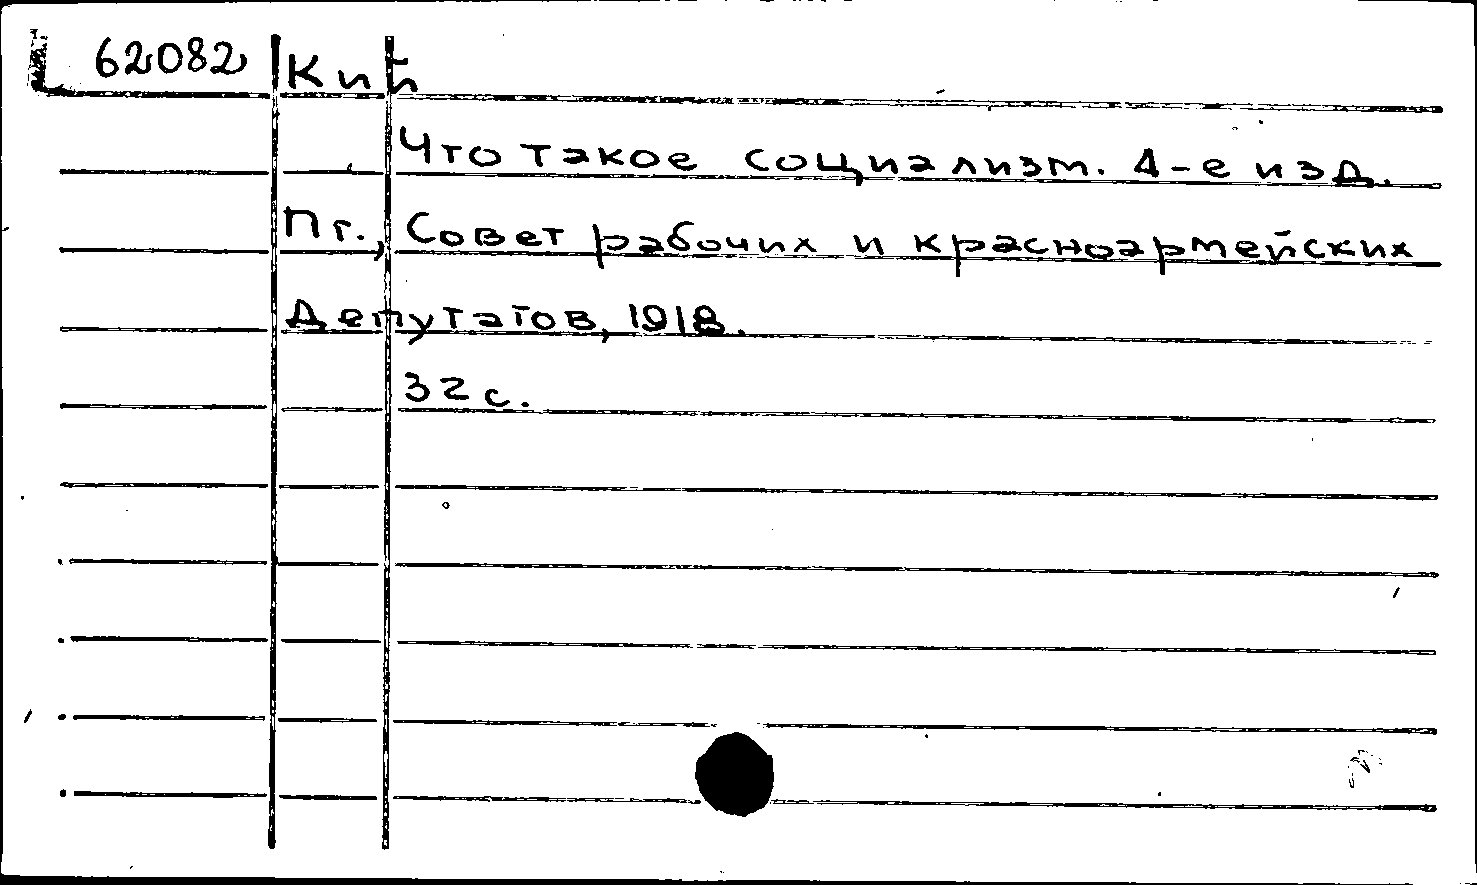 62082 Кий
Что такое социализм. 4-е изд.
Пг., Совет рабочих и красноармейских
Депутатов, 1918.
32 с.